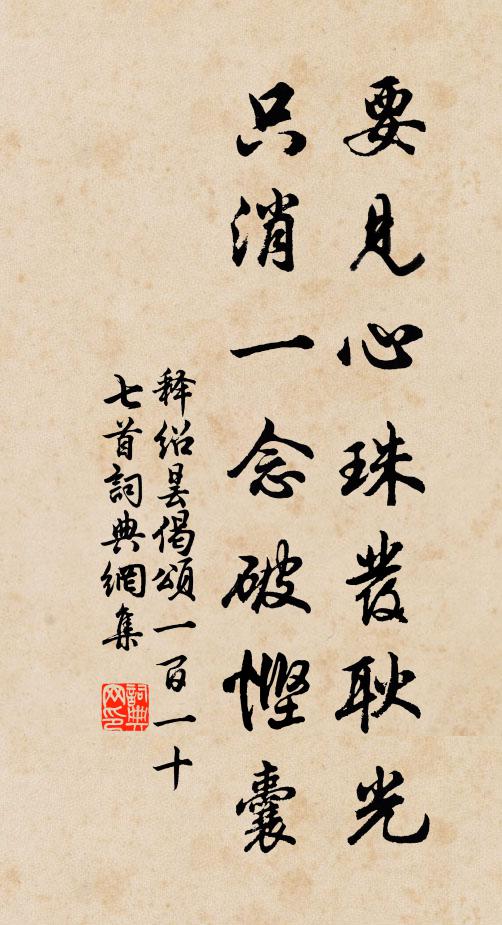 要見心珠發耿光
只消一念破慳囊
释紹曇偈頌一百一十
七首詞典網集
詞典网印